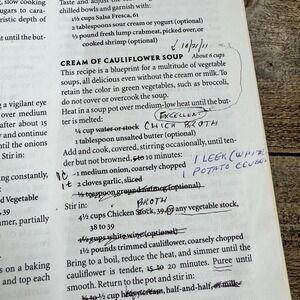 , slow cooking
ugars to cara-
ristic depth of
t until the but-
ng a vigilant eye
over medium
after about 15
and continue
til the onions
Stir in:
ng constantly,
d Vegetable
39
mmer, partially
s on a baking
and top each
Taste and adjust the
chilled bowls and garnish with:
1½ cups Salsa Fresca, 61
2 tablespoons sour cream or yogurt (optional)
½ pound fresh lump crabmeat, picked over, or
cooked shrimp (optional)
10/21/11
CREAM OF CAULIFLOWER SOUP About 6 cups
This recipe is a blueprint for a multitude of vegetable
soups, all delicious even without the cream or milk. To
retain the color in green vegetables, such as broccoli,
do not cover or overcook the soup.
Heat in a soup pot over medium-low heat until the but-
ter is melted:
EXCELLENT
¼ cup water or stock CHICK BROTH
1 tablespoon unsalted butter (optional)
Add and cook, covered, stirring occasionally, until ten-
der but not browned, 5 to 10 minutes:
1 medium onion, coarsely chopped
1 LEEK (WHITE
POTATO CUBED
1t 2 cloves garlic, sliced
¼ teaspoon ground nutmeg (optional)
Stir in:
BROTH
4½ cups Chicken Stock, 39, or any vegetable stock,
38 to 39
½ cup white wine (optional)
1½ pounds trimmed cauliflower, coarsely chopped
Bring to a boil, reduce the heat, and simmer until the
cauliflower is tender, 15 to 20 minutes. Puree until
smooth. Return to the pot and stir in:
¼ to ½ cup heavy cream, half-and-half, or milk